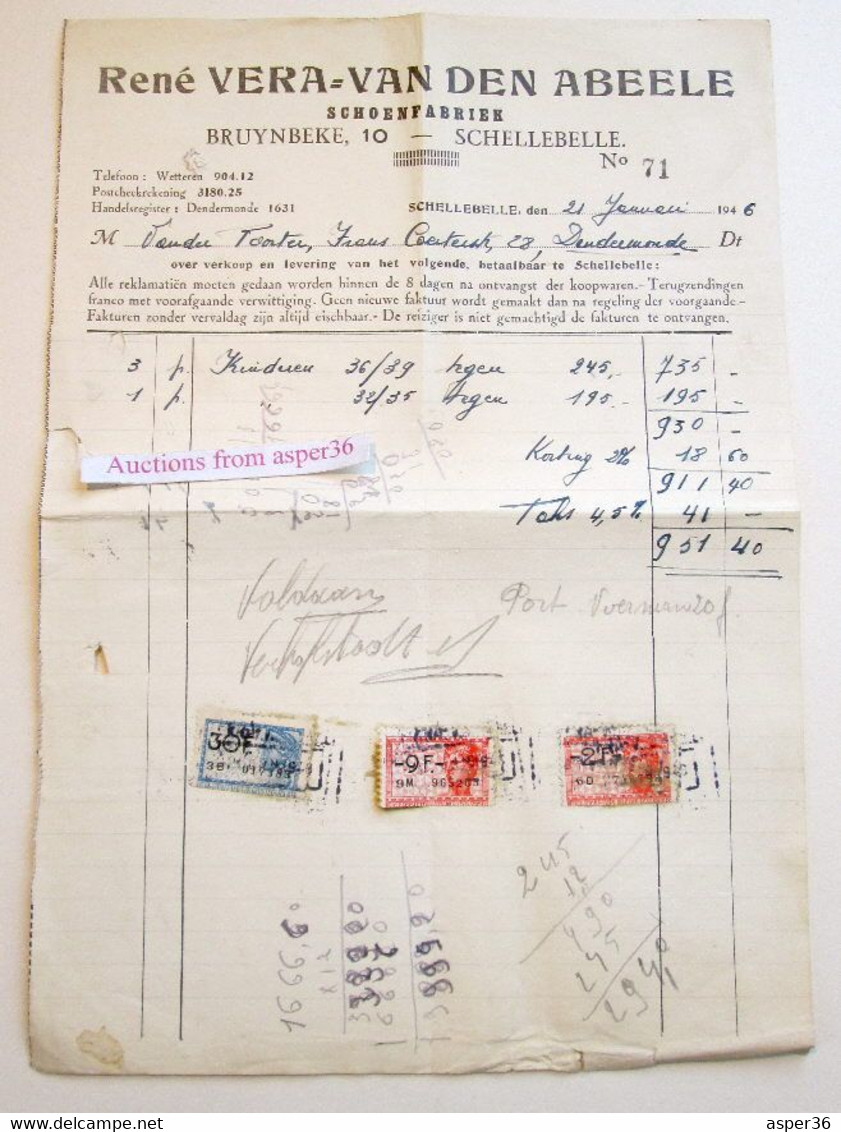 René VERA-VAN DEN ABEELE
SCHOENFABRIEK
BRUYNBEKE, 10 — SCHELLEBELLE.
No 71
Telefoon : Wetteren 904.12
Postcheckrekening 3180.25
Handelsregister : Dendermonde 1631
SCHELLEBELLE, den 21 Januari 1946
M Vander Frans 28, Dendermonde Dt
over verkoop en levering van het volgende, betaalbaar te Schellebelle :
Alle reklamatiën moeten gedaan worden binnen de 8 dagen na ontvangst der koopwaren.- Terugzendingen
franco met voorafgaande verwittiging. Geen nieuwe faktuur wordt gemaakt dan na regeling der voorgaande.-
Fakturen zonder vervaldag zijn altijd eischbaar.- De reiziger is niet gemachtigd de fakturen te ontvangen.
3 p. Kinderen 36/39 tegen 245,- 735 -
1 p. 32/35 tegen 195.- 195 -
930 -
Korting 2% 18 60
Auctions from asper36
911 40
Taks 4,5% 41 -
951 40
Voldaan
Port Voerman 20 f
30F
-9F.-
-2F.-
245
12
490
245
2940
1666,0
x12
asper36